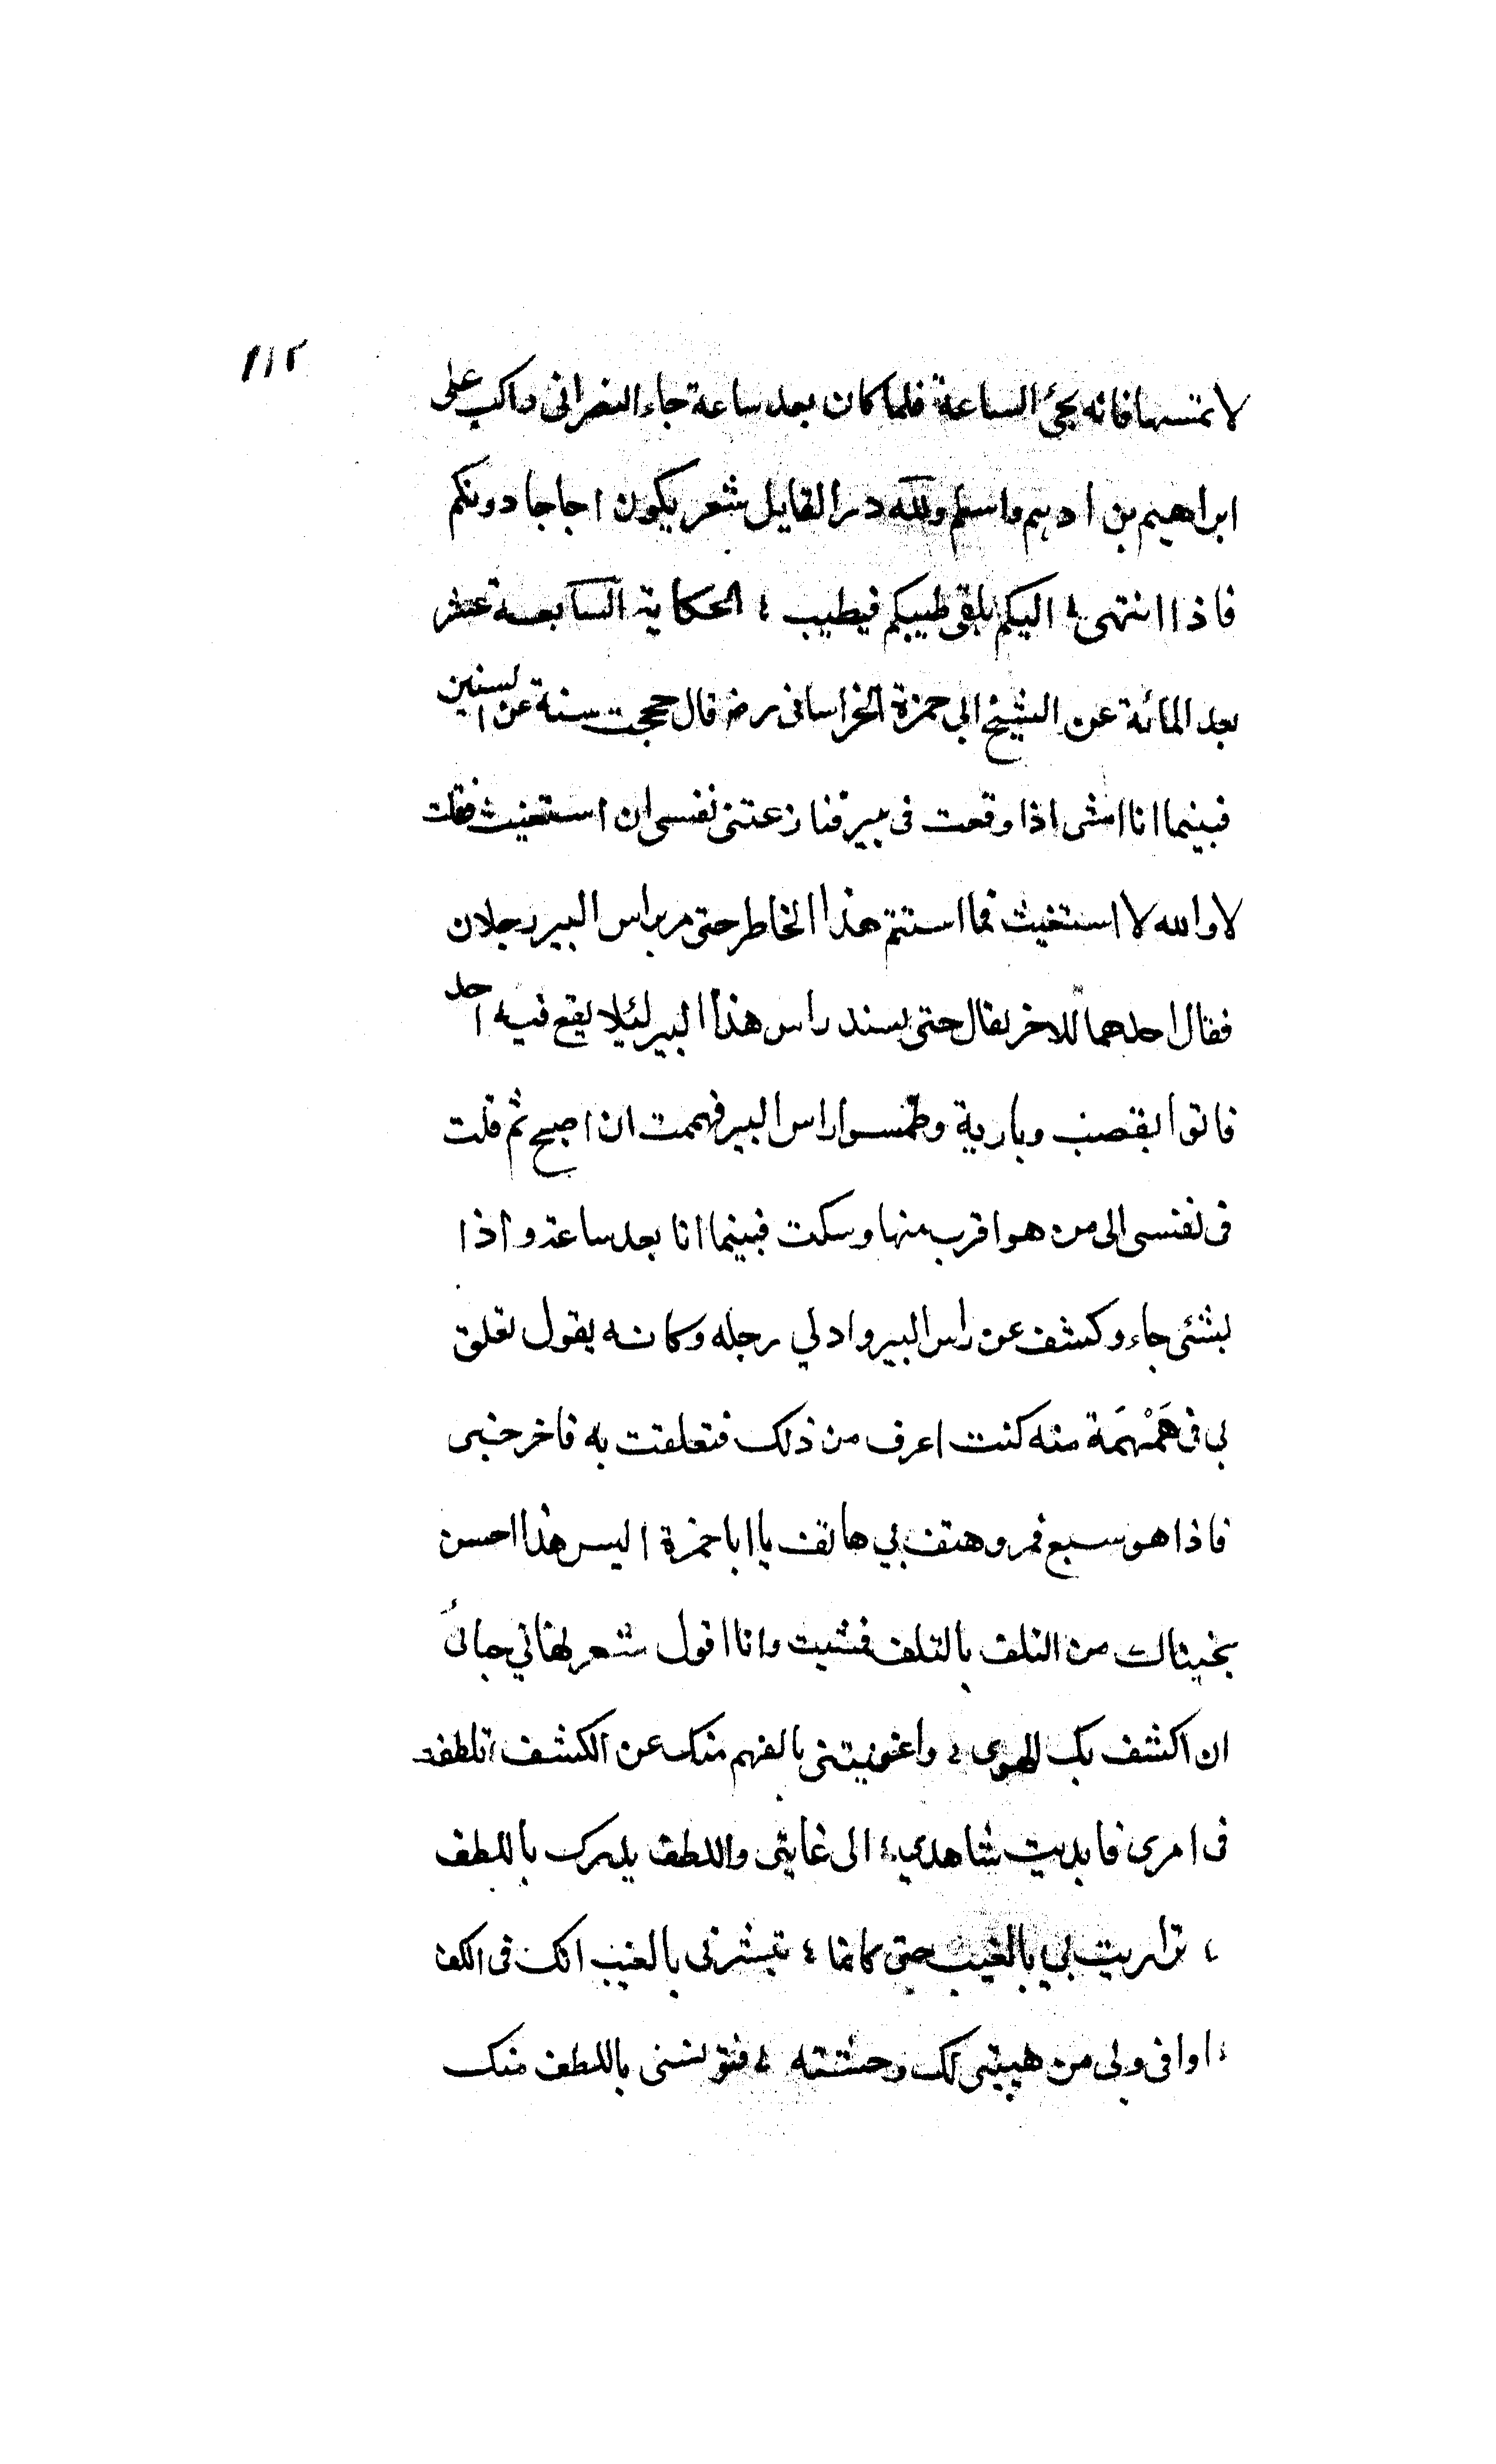 ١١٢
لا تمسها فانه يجئ الساعة فلما كان بعد ساعة جاء النصرانى واكب على
ابراهيم بن ادهم واسلم ولله در القايل شعر يكون اجاجا دونكم
فاذا انتهى ؛ اليكم تلقى طيبكم فيطيب ؛ الحكاية السابعة عشر
بعد المائة عن الشيخ ابى حمزة الخراسانى رض قال حججت سنة من السنين
فبينما انا امشى اذا وقعت فى بير فنازعتنى نفسى ان استغيث فقلت
لا والله لا استغيث فما استتم هذا الخاطر حتى مر براس البير رجلان
فقال احدهما للاخر تعال حتى نسند راس هذا البير لئلا يقع فيه احد
فاتوا بقصب وبارية وطمسوا راس البير فهممت ان اصيح ثم قلت
فى نفسى الى من هو اقرب منها وسكت فبينما انا بعد ساعة واذا
بشئى جاء وكشف عن راس البير وادلي رجله وكانه يقول تعلق
بي فى هَمْهَمَة منه كنت اعرف من ذلك فتعلقت به فاخرجنى
فاذا هو سبع فمر وهتف بي هاتف يا ابا حمزة اليس هذا احسن
نجيناك من التلف بالتلف فمشيت وانا اقول شعر نهاني حيائ
ان اكشف بك الهوى ؛ واغنيتنى بالفهم منك عن الكشف ؛ تلطفت
فى امرى فابديت شاهدي ؛ الى غايتى واللطف يدرك باللطف
؛ تراريت لي بالغيب حتى كانما ؛ تبشرنى بالغيب انك فى الكف
؛ اوافى ولى من هيبتى لك وحشته ؛ فتونسنى باللطف منك